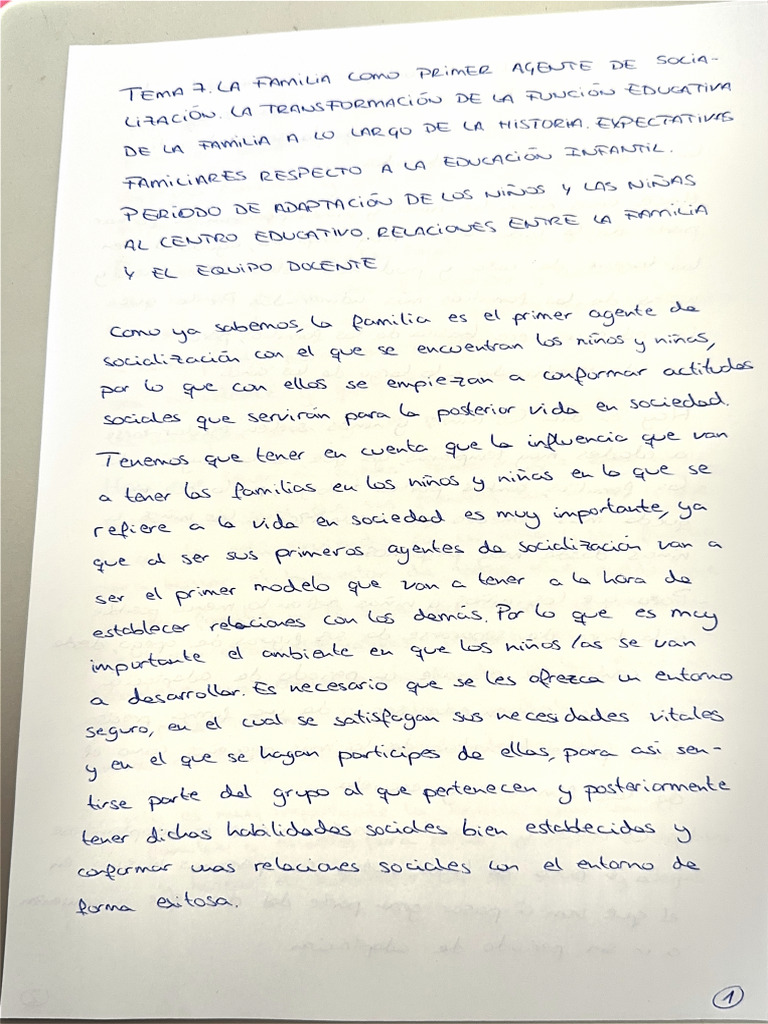 TEMA 7. LA FAMILIA COMO PRIMER AGENTE DE SOCIA-
LIZACIÓN. LA TRANSFORMACIÓN DE LA FUNCIÓN EDUCATIVA
DE LA FAMILIA A LO LARGO DE LA HISTORIA. EXPECTATIVAS
FAMILIARES RESPECTO A LA EDUCACIÓN INFANTIL.
PERÍODO DE ADAPTACIÓN DE LOS NIÑOS Y LAS NIÑAS
AL CENTRO EDUCATIVO. RELACIONES ENTRE LA FAMILIA
Y EL EQUIPO DOCENTE
Como ya sabemos, la familia es el primer agente de
socialización con el que se encuentran los niños y niñas,
por lo que con ellos se empiezan a conformar actitudes
sociales que servirán para la posterior vida en sociedad.
Tenemos que tener en cuenta que la influencia que van
a tener las familias en los niños y niñas en lo que se
refiere a la vida en sociedad es muy importante, ya
que al ser sus primeros agentes de socialización van a
ser el primer modelo que van a tener a la hora de
establecer relaciones con los demás. Por lo que es muy
importante el ambiente en que los niños/as se van
a desarrollar. Es necesario que se les ofrezca un entorno
seguro, en el cual se satisfagan sus necesidades vitales
y en el que se hagan partícipes de ellas, para así sen-
tirse parte del grupo al que pertenecen y posteriormente
tener dichas habilidades sociales bien establecidas y
conformar unas relaciones sociales con el entorno de
forma exitosa.
1